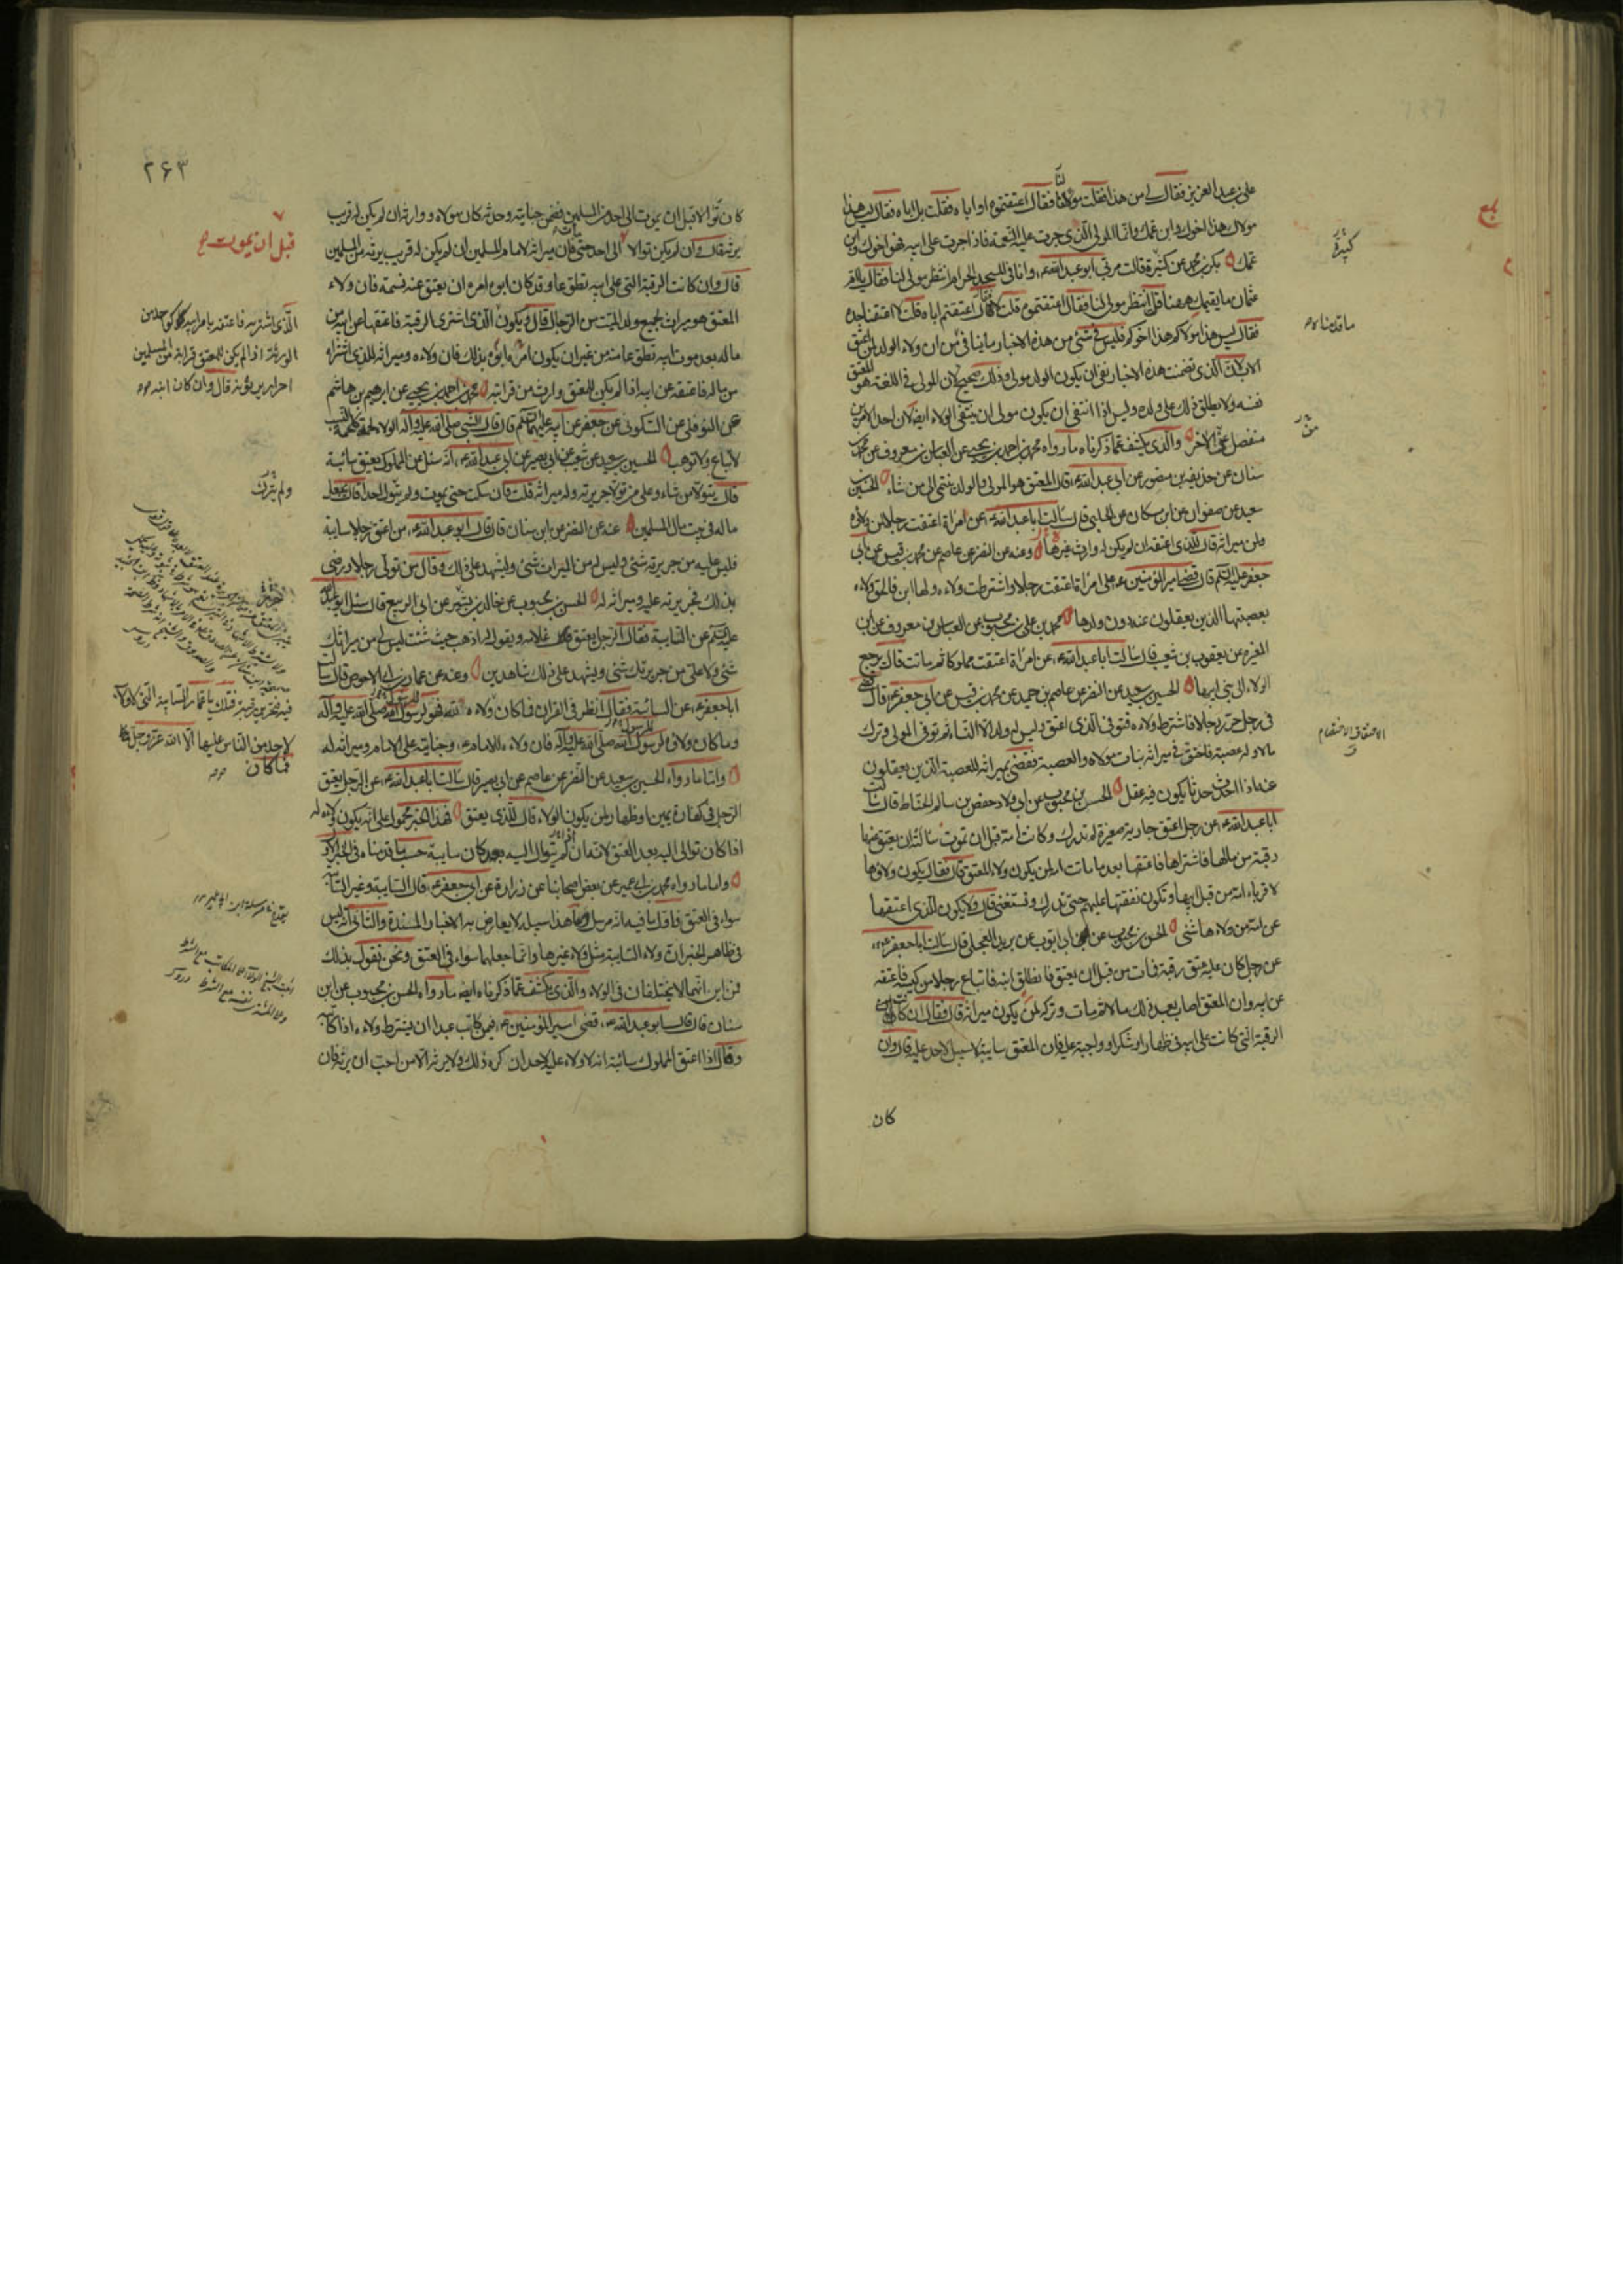 علي بن عبد العزيز فقال لي من هذا فقلت مولى لنا فقال اعتقتموه او اباه فقلت بل اباه فقال ليس هذا
مولاك هذا اخوك وابن عمك وانما المولى الذي جرت عليه النعمة فاذا جرت على ابيه فهو اخوك وابن
عمك بكر بن محمد عن كثيرة قالت مر بي ابو عبد الله ع وانا في المسجد الحرام انتظر مولى لنا فقال يا ام
عثمان ما يقيمك ههنا قلت انتظر مولى لنا فقال اعتقتموه قلت لا فقال اعتقتم اباه قلت لا اعتقنا جده
فقال ليس هذا مولاكم هذا اخوكم فليس في شئ من هذه الاخبار ما ينافي من ان ولاء الولد لمن اعتق
الاب لان الذي تضمنت هذه الاخبار نفي ان يكون الولد مولى وذلك صحيح لان المولى في اللغة هو المعتق
نفسه ولا يطلق ذلك على ولده وليس اذا انتفى ان يكون مولى ان ينتفي الولاء ايضا لان احد الامرين
منفصل عن الاخر والذي يكشف عما ذكرناه ما رواه محمد بن احمد بن يحيى عن العباس بن معروف عن محمد بن
سنان عن حذيفة بن منصور عن ابي عبد الله ع قال المعتق هو المولى والولد ينتمي الى من شاء الحسين بن
سعيد عن صفوان عن ابن مسكان عن الحلبي قال سألت ابا عبد الله ع عن امرأة اعتقت رجلا لمن ولاؤه
ولمن ميراثه قال للذي اعتقه ان لم يكن له وارث غيرها وعنه عن النضر عن عاصم عن محمد بن قيس عن ابي
جعفر عليه السلام قال قضى امير المؤمنين ع على امرأة اعتقت رجلا واشترطت ولاءه ولها ابن فالحق ولاءه
بعصبتها الذين يعقلون عنه دون ولدها محمد بن علي بن محبوب عن العباس بن معروف عن ابن
المغيرة عن يعقوب بن شعيب قال سألت ابا عبد الله ع عن امرأة اعتقت مملوكا ثم ماتت قال يرجع
الولاء الى بني ابيها الحسين بن سعيد عن النضر عن عاصم بن حميد عن محمد بن قيس عن ابي جعفر ع قال قضى
في رجل حرر رجلا فاشترط ولاءه فتوفي الذي اعتق وليس له ولد الا النساء ثم توفي المولى وترك
مالا وله عصبة فاحتق في ميراثه بنات مولاه والعصبة فقضى بميراثه للعصبة الذين يعقلون
عنه اذا احدث حدثا يكون فيه عقل الحسن بن محبوب عن ابي ولاد حفص بن سالم الحناط قال سألت
ابا عبد الله ع عن رجل اعتق جارية صغيرة لم تدرك وكانت امه قبل ان تموت سألته ان يعتق عنها
رقبة من مالها فاشتراها فاعتقها بعد ما ماتت امه لمن يكون ولاء المعتق قال فقال يكون ولاؤها
لاقرباء امه من قبل ابيها وتكون نفقتها عليهم حتى تدرك وتستغني قال ولا يكون للذي اعتقها
عن امه من ولاءها شئ الحسن بن محبوب عن ابي ايوب عن بريد العجلي قال سألت ابا جعفر ع
عن رجل كان عليه عتق رقبة فمات من قبل ان يعتق فانطلق ابنه فابتاع رجلا من كسبه فاعتقه
عن ابيه وان المعتق اصاب بعد ذلك مالا ثم مات وتركه لمن يكون ميراثه قال فقال ان كانت
الرقبة التي كانت على ابيه في ظهار او شكر او واجبة عليه فان المعتق سايبة لا سبيل لاحد عليه قال وان
كان
بلغ
كثيرة
ما قدمناه
من
٢۶٣
كان توالا قبل ان يموت الى احد من المسلمين فضمن جنايته وحدثه كان مولاه ووارثه ان لم يكن له قريب
يرثه قال وان لم يكن توالا الى احد حتى مات فان ميراثه لامام المسلمين ان لم يكن له قريب يرثه من المسلمين
قال وان كانت الرقبة التي على ابيه تطوعا وقد كان ابوه امره ان يعتق عنه نسمة فان ولاء
المعتق هو ميراث لجميع ولد الميت من الرجال قال ويكون الذي اشترى الرقبة فاعتقها عن ابيه من
ماله بعد موت ابيه تطوعا منه من غير ان يكون امره ابوه بذلك فان ولاءه وميراثه للذي اشتراه
من ماله فاعتقه عن ابيه اذا لم يكن للمعتق وارث من قرابته محمد بن احمد بن يحيى عن ابرهيم بن هاشم
عن النوفلي عن السكوني عن جعفر عن ابيه عليهما السلام قال قال النبي صلى الله عليه وآله الولاء لحمة كلحمة النسب
لا تباع ولا توهب الحسين بن سعيد عن شعيب عن ابي بصير عن ابي عبد الله ع انه سئل عن المملوك يعتق سائبة
قال يتولا من شاء وعلى من تولا جريرته وله ميراثه قلت فان سكت حتى يموت ولم يتول احدا قال يجعل
ماله في بيت مال المسلمين عنه عن النضر عن ابن سنان قال قال ابو عبد الله ع من اعتق رجلا سايبة
فليس عليه من جريرته شئ وليس له من الميراث شئ وليشهد على ذلك وقال من تولى رجلا ورضى
بذلك فجريرته عليه وميراثه له الحسن بن محبوب عن خالد بن جرير عن ابي الربيع قال سئل ابو عبد الله
عليه السلام عن السايبة فقال الرجل يعتق غلامه ويقول له اذهب حيث شئت ليس لي من ميراثك
شئ ولا علي من جريرتك شئ ويشهد على ذلك شاهدين وعنه عن عمار بن ابي الاحوص قال سألت
ابا جعفر ع عن السائبة فقال انظر في القران فما كان ولاءه لله فهو لرسول الله صلى الله عليه وآله
وما كان ولاؤه لرسول الله صلى الله عليه وآله فان ولاءه للامام ع وجنايته على الامام وميراثه له
واما ما رواه الحسين بن سعيد عن النضر عن عاصم عن ابي بصير قال سألت ابا عبد الله ع عن الرجل يعتق
الرجل في كفارة يمين او ظهار لمن يكون الولاء قال للذي يعتق فهذا الخبر محمول على انه يكون ولاءه له
اذا كان توالى اليه بعد العتق لانه ان لم يتوال اليه بعد كان سايبة حسب ما قدمناه في الخبر الاول
واما ما رواه محمد بن ابي عمير عن بعض اصحابنا عن زرارة عن ابي جعفر ع قال السايبة وغير السايبة
سواء في العتق فاول ما فيه انه مرسل وما هذا سبيله لا يعارض به الاخبار المسندة والثاني انه ليس
في ظاهر الخبر ان ولاء السايبة مثل ولاء غيرها وانما جعلهما سواء في العتق ونحن نقول بذلك
فمن اين انهما لا يختلفان في الولاء والذي يكشف عما ذكرناه ايضا ما رواه الحسن بن محبوب عن ابن
سنان قال قال ابو عبد الله ع قضى امير المؤمنين ع فيمن كاتب عبدا ان يشترط ولاءه اذا كاتبه
وقال اذا اعتق المملوك سائبة انه لا ولاء عليه لاحد ان كره ذلك ولا يرثه الا من احب ان يرثه فان
قبل ان يموت
الذي اشتريه فاعتقه بامر ابيه كواحد من
الورثة اذا لم يكن للمعتق قرابة من المسلمين
احرار يرثونه قال وان كان ابنه
ولم يترك
فيه فتحرير رقبة فتلك يا عمار السايبة التي لا ولاء
لاحد من الناس عليها الا الله عز وجل
فما كان